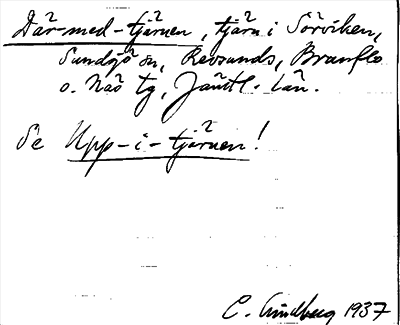 Där-med-tjärnen, tjärn i Sörviken,
Sundsjö sn, Revsunds, Brunflo
o. Näs tg, Jämtl. län.
Se Upp-i-tjärnen!
C. Lindberg 1937